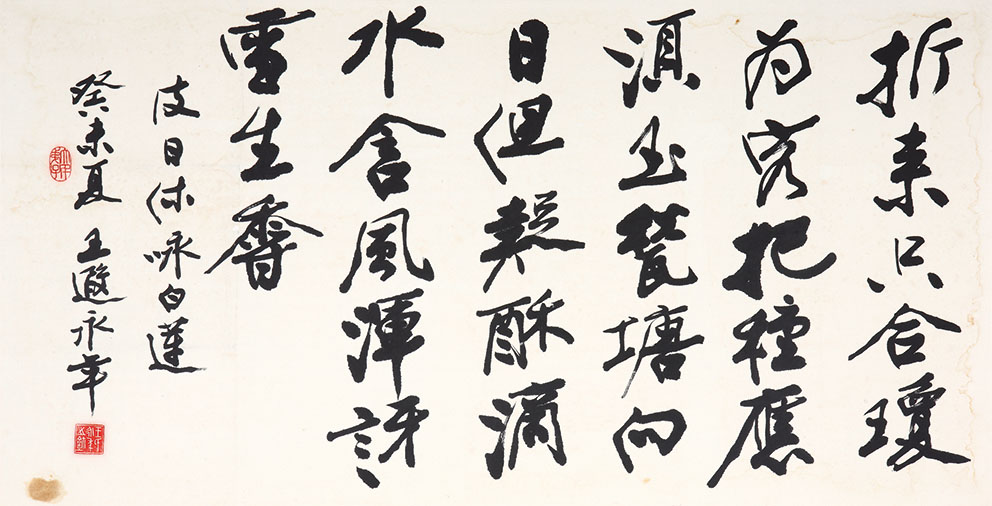 折来只合瓊
为客把種應
須玉甃塘向
日但疑酥滴
水含風渾訝
雪生香
皮日休咏白蓮
癸未夏 王遐永年